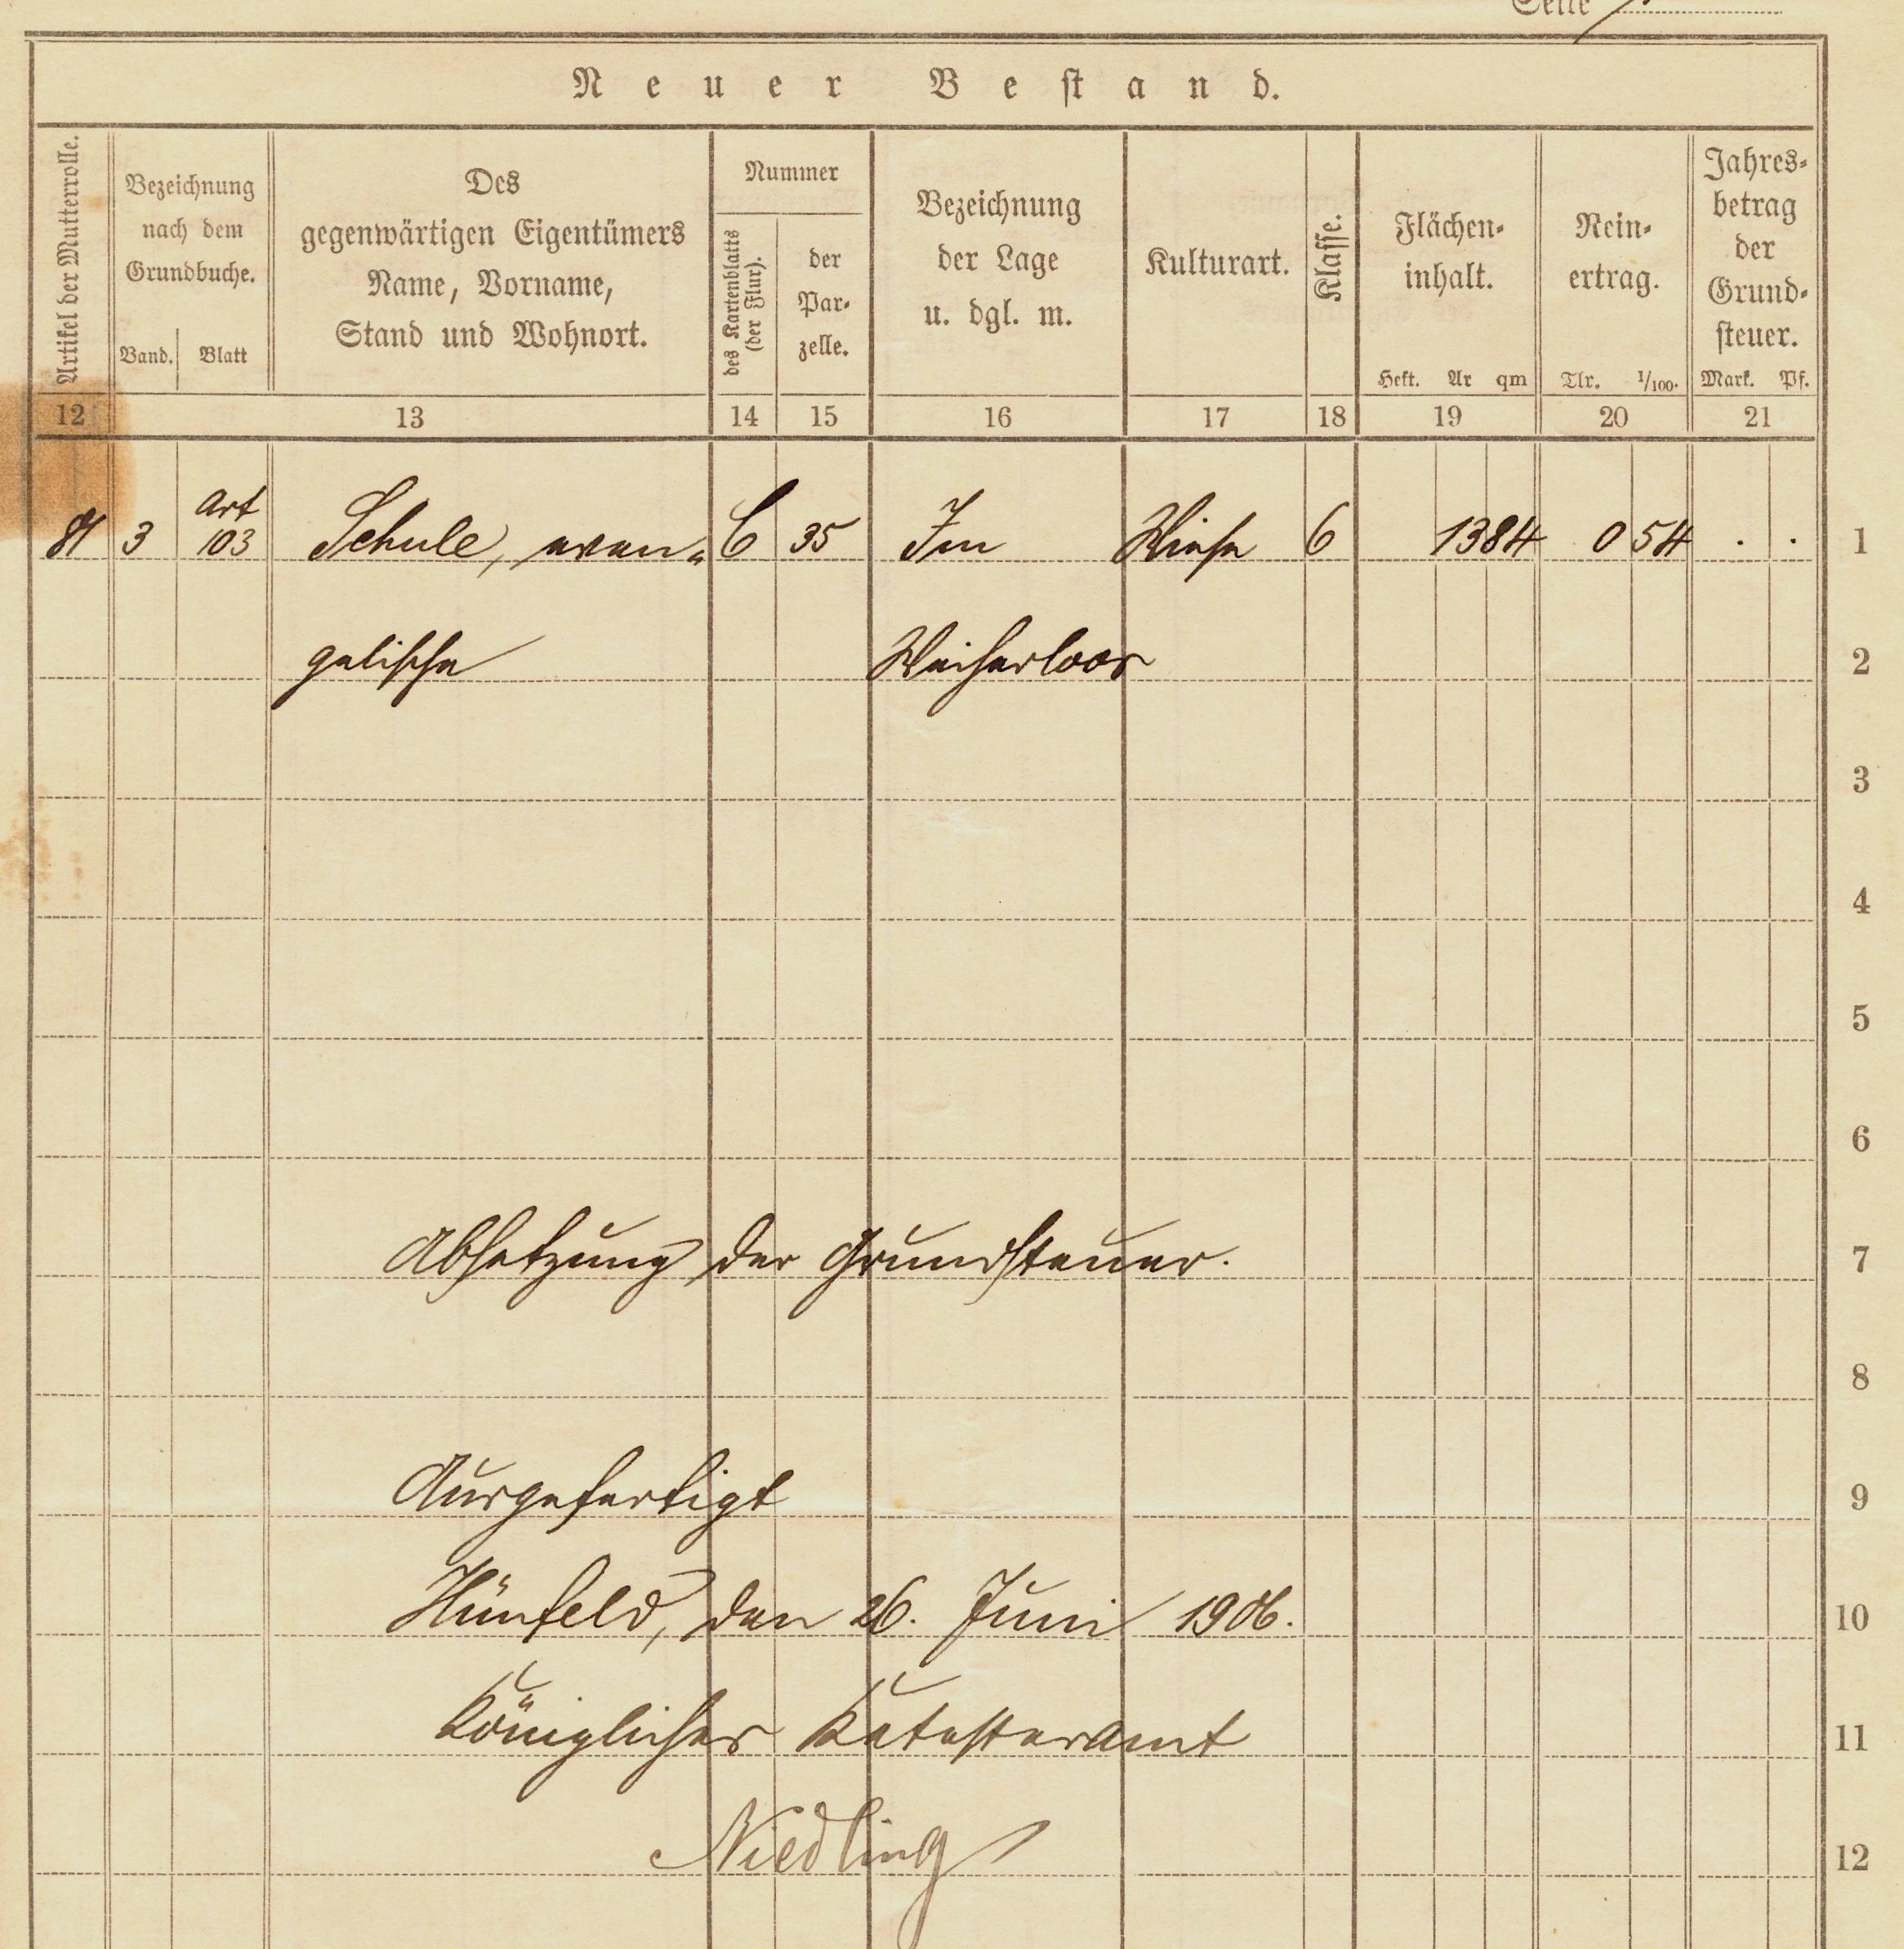 Seite
Neuer Bestand.
Artikel der Mutterrolle.
Bezeichnung
nach dem
Grundbuche.
Band. Blatt
Des
gegenwärtigen Eigentümers
Name, Vorname,
Stand und Wohnort.
Nummer
des Kartenblatts
(der Flur).
der
Par-
zelle.
Bezeichnung
der Lage
u. dgl. m.
Kulturart.
Klasse.
Flächen-
inhalt.
Hekt. Ar qm
Rein-
ertrag.
Tlr. 1/100.
Jahres-
betrag
der
Grund-
steuer.
Mark. Pf.
12 13 14 15 16 17 18 19 20 21
Art
3 103 Schule, evan- C 35 Im Wiese 6 1384 0 54 . . 1
gelische 2
3
4
5
6
Absetzung der Grundsteuer. 7
8
Ausgefertigt 9
Hünfeld, den 26. Juni 1906. 10
Königliches Katasteramt 11
Niedling 12